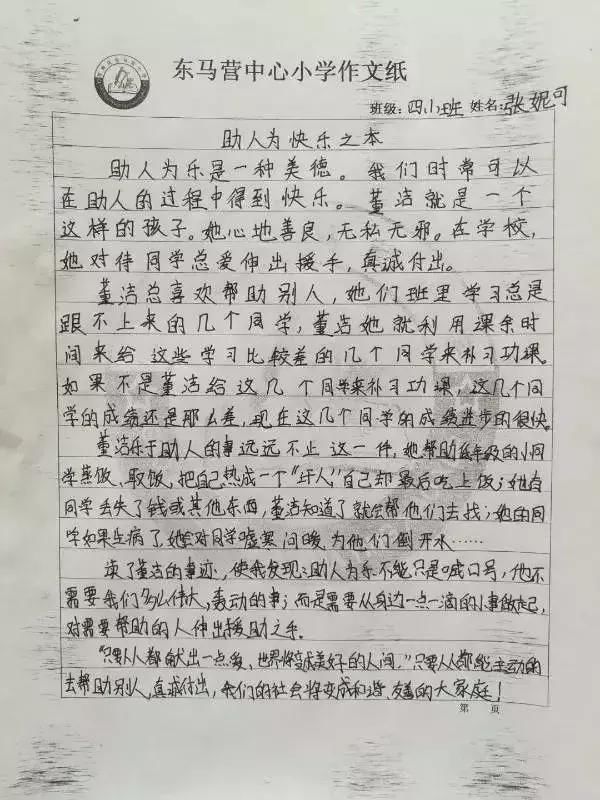 东马营中心小学作文纸
班级：四、1班 姓名：张妮可
助人为快乐之本
助人为乐是一种美德。我们时常可以
在助人的过程中得到快乐。董洁就是一个
这样的孩子。她心地善良，无私无邪。在学校，
她对待同学总爱伸出援手，真诚付出。
董洁总喜欢帮助别人，她们班里学习总是
跟不上来的几个同学，董洁她就利用课余时
间来给这些学习比较差的几个同学来补习功课。
如果不是董洁给这几个同学来补习功课，这几个同
学的成绩还是那么差，现在这几个同学的成绩进步的很快。
董洁乐于助人的事远远不止这一件，她帮助低年级的小同
学蒸饭、取饭，把自己热成一个“汗人”自己却最后吃上饭；她有
同学丢失了钱或其他东西，董洁知道了就会帮他们去找；她的同
学如果生病了，她会对同学嘘寒问暖、为他们倒开水……
读了董洁的事迹，使我发现：助人为乐不能只是喊口号，也不
需要我们多么伟大，轰动的事；而是需要从身边一点一滴的小事做起，
对需要帮助的人伸出援助之手。
“只要人人都献出一点爱、世界将变成美好的人间。”只要人人都能主动的
去帮助别人，真诚付出，我们的社会将变成和谐、友善的大家庭！
第 页